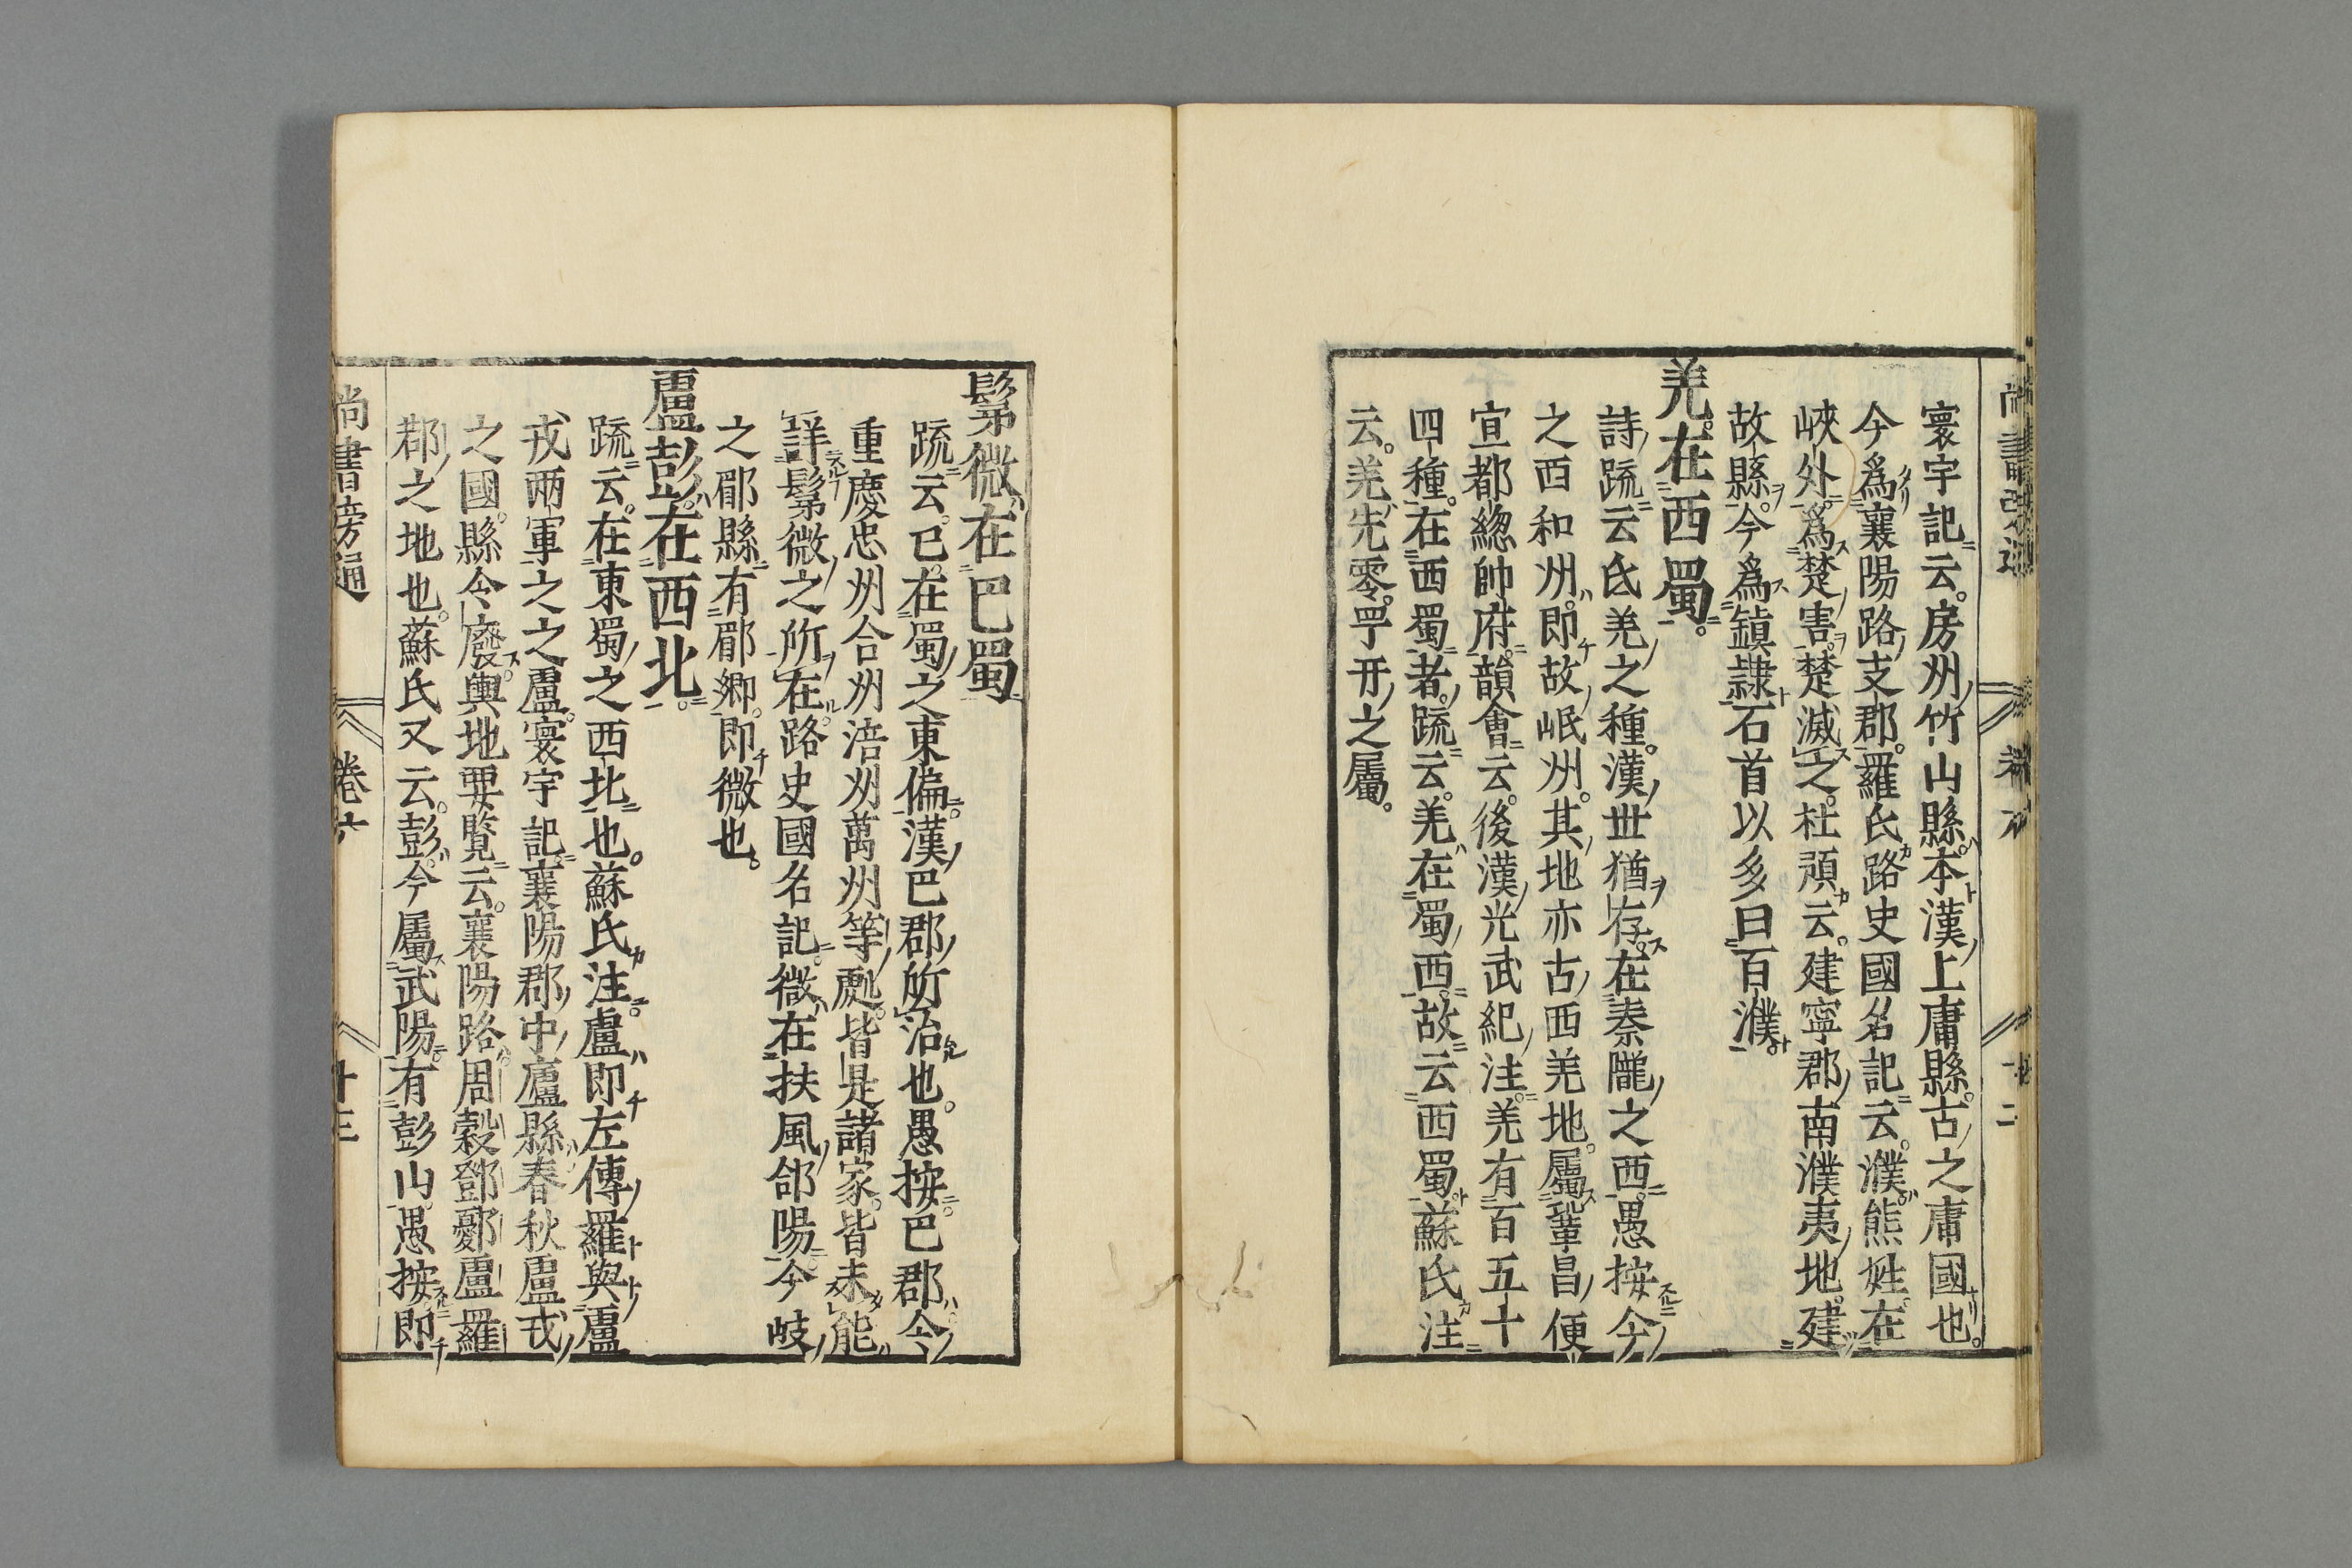 寰宇記云房州竹山縣本漢上庸縣古之庸國也
今爲襄陽路支郡羅氏路史國名記云濮熊姓在
峽外爲楚害楚滅之杜預云建寧郡南濮夷地建
故縣今爲鎮隷石首以多曰百濮
羌在西蜀
詩䟽云氐羌之種漢世猶存在秦隴之西愚按今
之西和州即故岷州其地亦古西羌地屬鞏昌便
宜都緫帥府韻會云後漢光武紀注羌有百五十
四種在西蜀者䟽云羌在蜀西故云西蜀蘇氏注
云羌先零罕幵之屬
髳微在巴蜀
䟽云巳在蜀之東偏漢巴郡所治也愚按巴郡今
重慶忠州合州涪州萬州等處皆是諸家皆未能
詳髳微之所在路史國名記微在扶風郃陽今岐
之郿縣有郿鄉即微也
盧彭在西北
䟽云在東蜀之西北也蘇氏注盧即左傳羅與盧
戎兩軍之之盧寰宇記襄陽郡中廬縣春秋盧戎
之國縣今廢輿地要覧云襄陽路周穀鄧鄾盧羅
郡之地也蘇氏又云彭今屬武陽有彭山愚按即
尚書旁通
卷六
十三